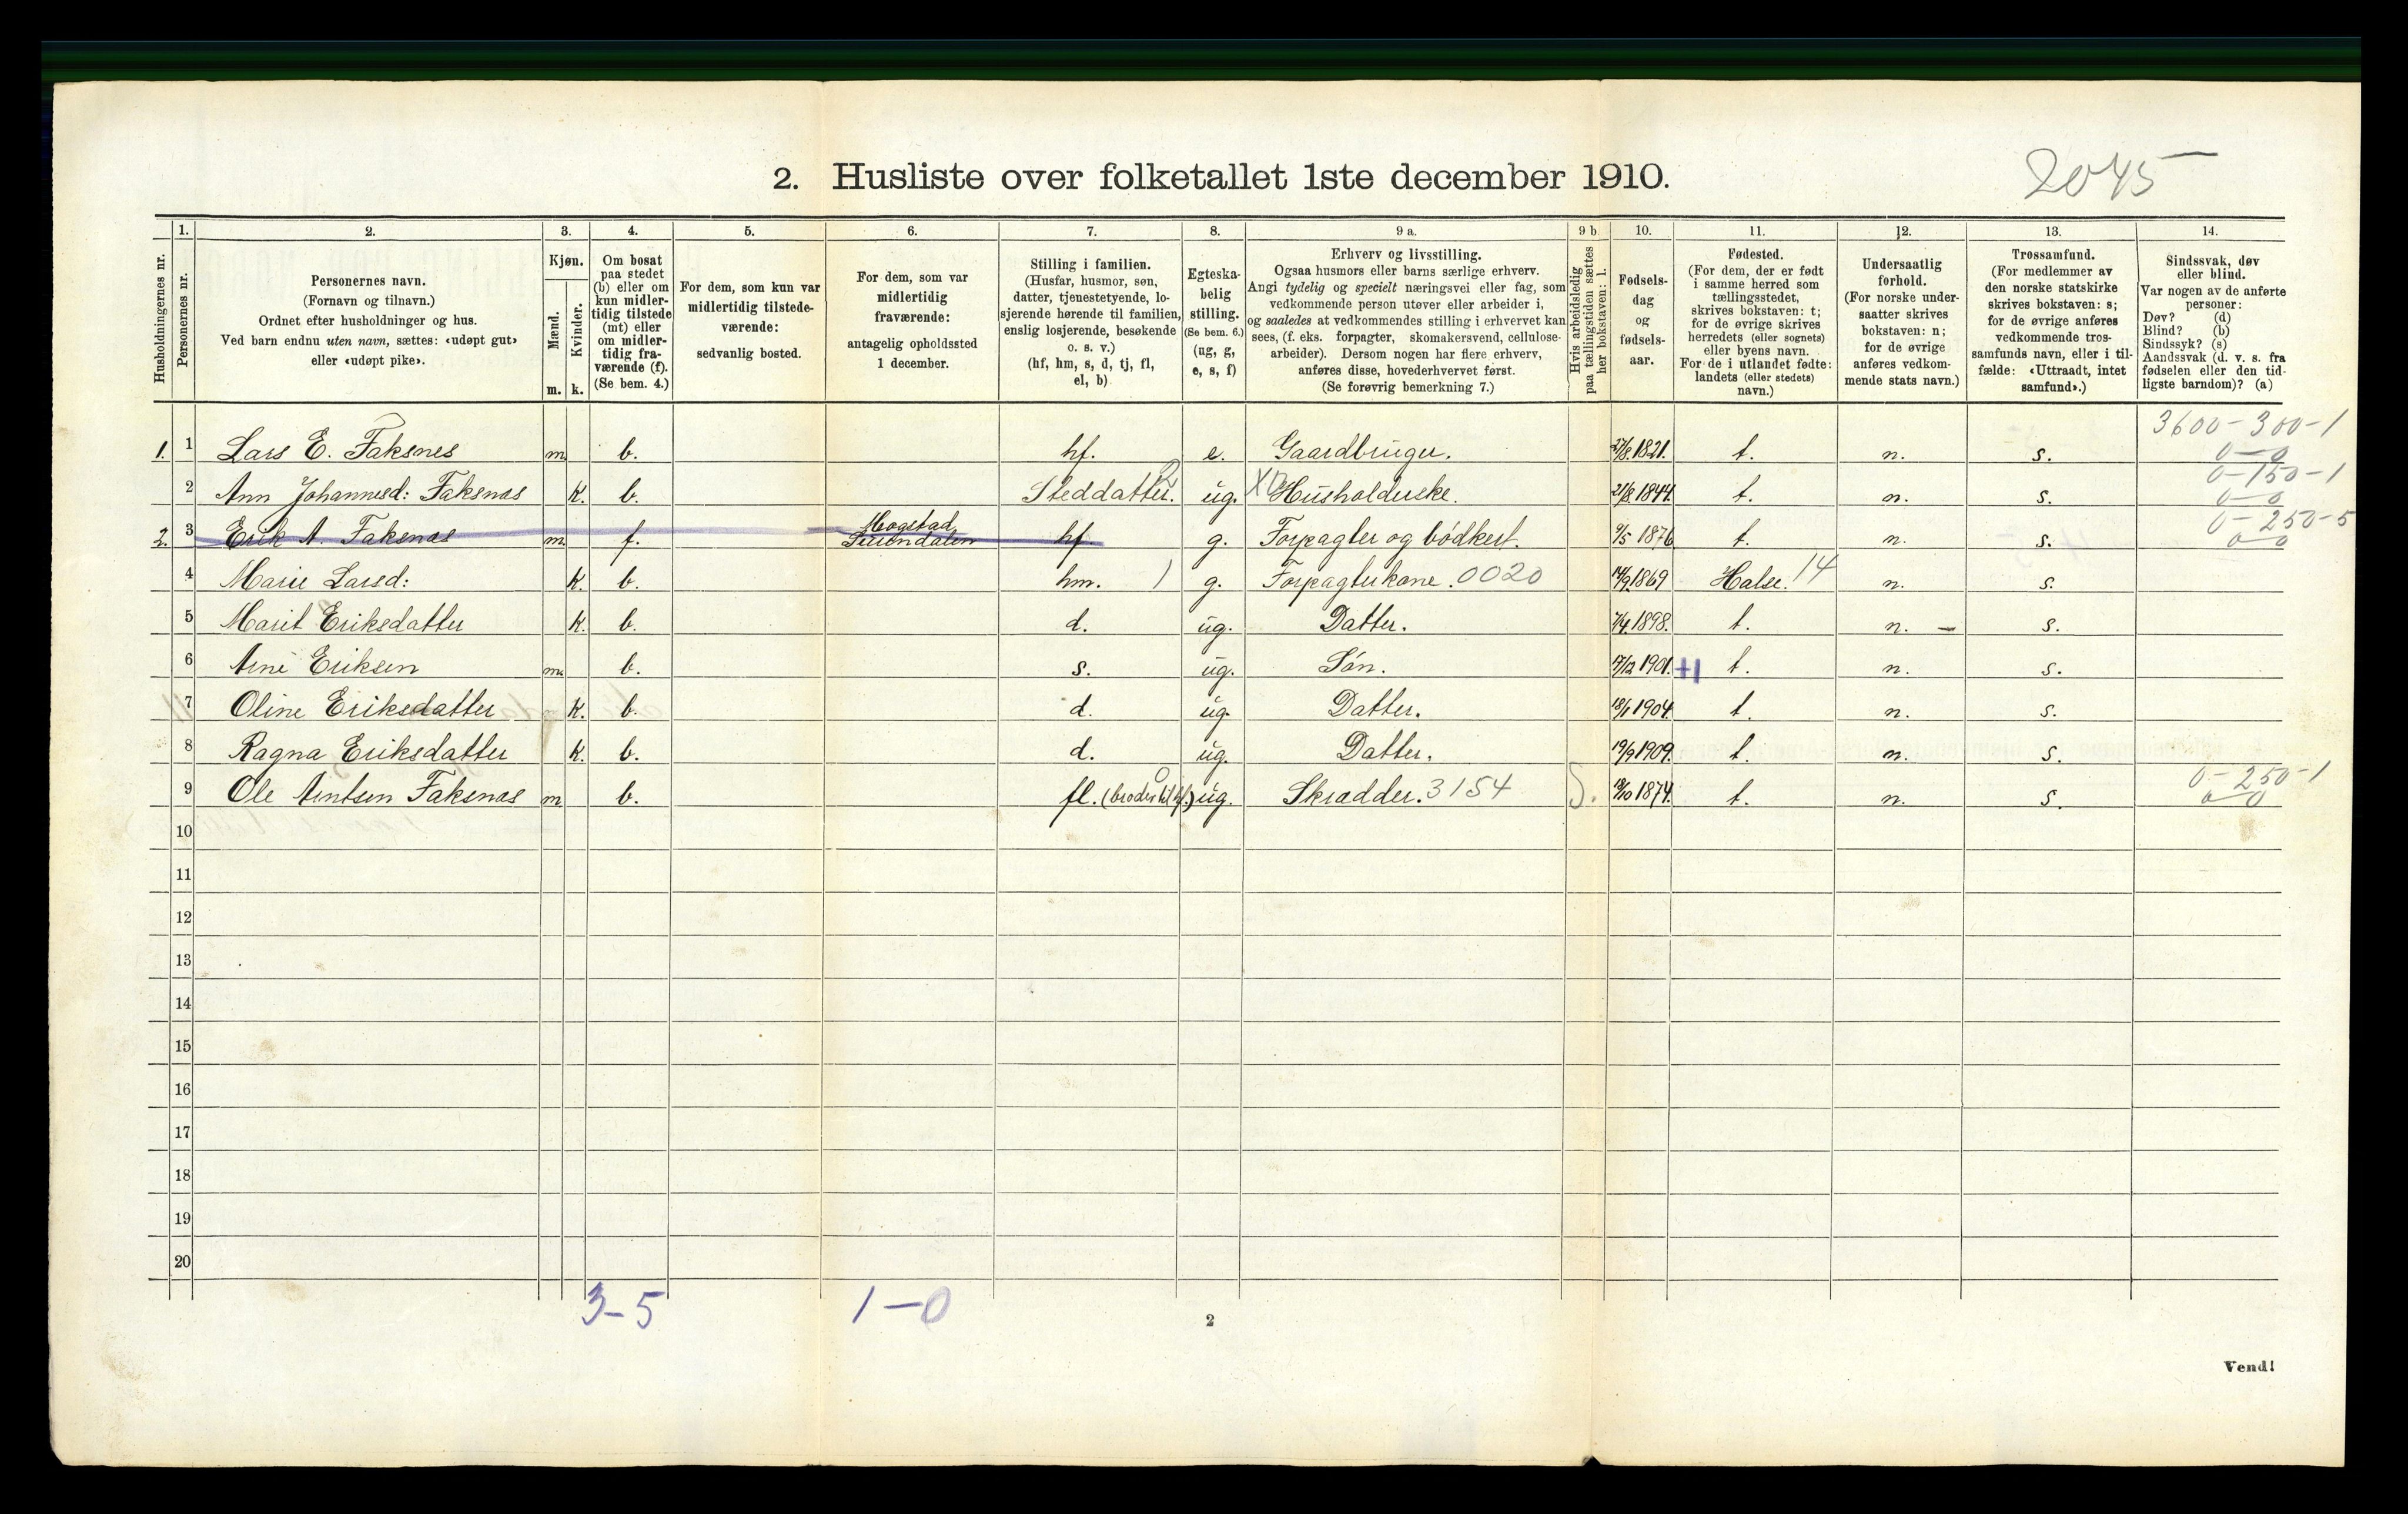 2. Husliste over folketallet 1ste december 1910.
2045
1. 2. 3. 4. 5. 6. 7. 8. 9 a. 9 b 10. 11. 12. 13. 14.
Husholdningernes nr.
Personernes nr.
Personernes navn.
(Fornavn og tilnavn.)
Ordnet efter husholdninger og hus.
Ved barn endnu uten navn, sættes: «udøpt gut»
eller «udøpt pike».
Kjøn.
Mænd.
Kvinder.
m. k.
Om bosat
paa stedet
(b) eller om
kun midler-
tidig tilstede
(mt) eller
om midler-
tidig fra-
værende (f).
(Se bem. 4.)
For dem, som kun var
midlertidig tilstede-
værende:
sedvanlig bosted.
For dem, som var
midlertidig
fraværende:
antagelig opholdssted
1 december.
Stilling i familien.
(Husfar, husmor, søn,
datter, tjenestetyende, lo-
sjerende hørende til familien,
enslig losjerende, besøkende
o. s. v.)
(hf, hm, s, d, tj, fl,
el, b)
Egteska-
belig
stilling.
(Se bem. 6.)
(ug, g,
e, s, f)
Erhverv og livsstilling.
Ogsaa husmors eller barns særlige erhverv.
Angi tydelig og specielt næringsvei eller fag, som
vedkommende person utøver eller arbeider i,
og saaledes at vedkommendes stilling i erhvervet kan
sees, (f. eks. forpagter, skomakersvend, cellulose-
arbeider). Dersom nogen har flere erhverv,
anføres disse, hovederhvervet først.
(Se forøvrig bemerkning 7.)
Hvis arbeidsledig
paa tællingstiden sættes
her bokstaven: l.
Fødsels-
dag
og
fødsels-
aar.
Fødested.
(For dem, der er født
i samme herred som
tællingsstedet,
skrives bokstaven: t;
for de øvrige skrives
herredets (eller sognets)
eller byens navn.
For de i utlandet fødte:
landets (eller stedets)
navn.)
Undersaatlig
forhold.
(For norske under-
saatter skrives
bokstaven: n;
for de øvrige
anføres vedkom-
mende stats navn.)
Trossamfund.
(For medlemmer av
den norske statskirke
skrives bokstaven: s;
for de øvrige anføres
vedkommende tros-
samfunds navn, eller i til-
fælde: «Uttraadt, intet
samfund».)
Sindssvak, døv
eller blind.
Var nogen av de anførte
personer:
Døv? (d)
Blind? (b)
Sindssyk? (s)
Aandssvak (d. v. s. fra
fødselen eller den tid-
ligste barndom)? (a)
3600-300-1
1. 1 Lars E. Faksnes m b. hf. e. Gaardbruger. 27/8.1821. t. n. s. 0-0
0-150-1
2 Ann Johannesd: Faksnæs K. b. Steddatter. ug. Husholderske. 21/8.1844. t. n. s. 0-0
Mogstad 0-250-5
2. 3 Erik A. Faksnæs m f. Surendalen hf g. Forpagter og bödkert. 9/5 1876 t. n. s. 0-0
4 Marie Larsd: K. b. hm. 1 g. Forpagterkone. 0020 14/9 1869 Halse. 14 n. s.
5 Marit Eriksdatter K. b. d. ug. Datter. 7/4.1898. t. n. - s.
6 Arne Eriksen m. b. s. ug. Sön. 17/12 1901. +1 t. n. s.
7 Oline Eriksdatter K. b. d. ug. Datter. 18/1 1904. t. n. s.
8 Ragna Eriksdatter K. b. d. ug. Datter. 19/9 1909. t. n. s.
0-250-1
9 Ole Arntsen Faksnæs m b. fl. (broder til hf.) ug. Skrædder. 3154 S. 18/10 1874. t. n. s. 0-0
10
11
12
13
14
15
16
17
18
19
20
3-5 1-0
2
Vend!